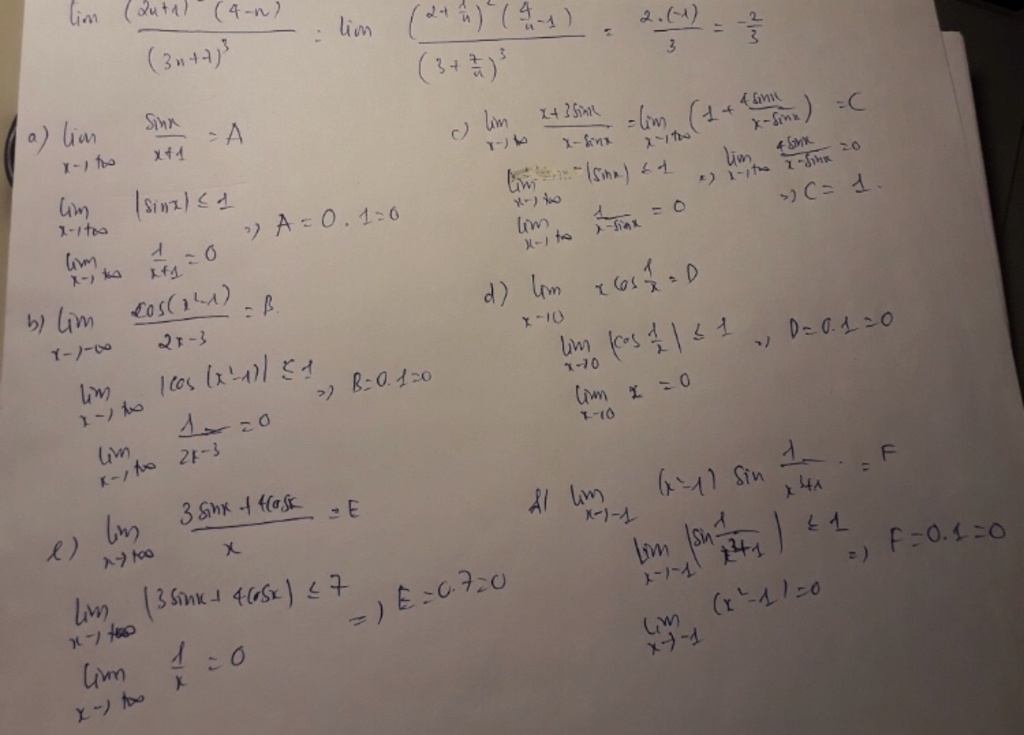 lim (2n+1)² (4-n) / (3n+7)³ = lim (2+1/n)² (4/n - 1) / (3+7/n)³ = 2.(-1) / 3 = -2/3
a) lim x→+∞ sinx / x+1 = A
lim x→+∞ |sinx| ≤ 1
lim x→+∞ 1/x+1 = 0
=> A = 0.1=0
b) lim x→-∞ cos(x²-1) / 2x-3 = B
lim x→+∞ |cos(x²-1)| ≤ 1
lim x→+∞ 1/2x-3 = 0
=> B=0.1=0
e) lim x→+∞ 3sinx+4cosx / x = E
lim x→+∞ |3sinx+4cosx| ≤ 7
lim x→+∞ 1/x = 0
=> E=0.7=0
c) lim x→+∞ x+3sinx / x-sinx = lim x→+∞ (1 + 4sinx / x-sinx) = C
lim x→+∞ |sinx| ≤ 1
lim x→+∞ 1/x-sinx = 0
=> lim x→+∞ 4sinx / x-sinx = 0
=> C = 1.
d) lim x→0 x cos 1/x = D
lim x→0 |cos 1/x| ≤ 1
lim x→0 x = 0
=> D=0.1=0
lim x→-1 (x²-1) sin 1/x³+1 = F
lim x→-1 |sin 1/x³+1| ≤ 1
lim x→-1 (x²-1)=0
=> F=0.1=0